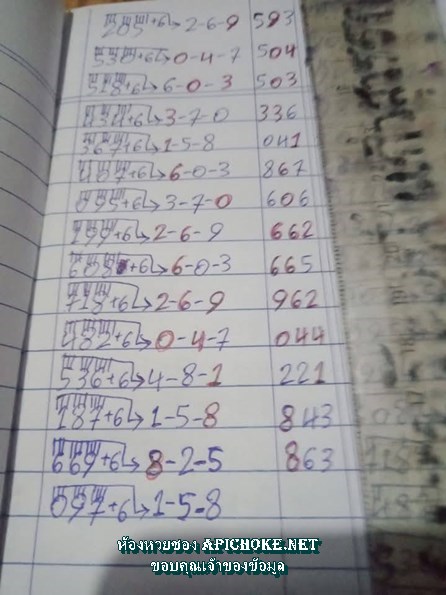 205+6→2-6-9 593
530+6→0-4-7 504
518+6→6-0-3 503
434+6→3-7-0 336
367+6→1-5-8 041
407+6→6-0-3 867
095+6→3-7-0 606
199+6→2-6-9 662
608+6→6-0-3 665
718+6→2-6-9 962
482+6→0-4-7 044
536+6→4-8-1 221
187+6→1-5-8 843
669+6→8-2-5 863
097+6→1-5-8
ห้องหวยซอง APICHOKE.NET
ขอบคุณเจ้าของข้อมูล